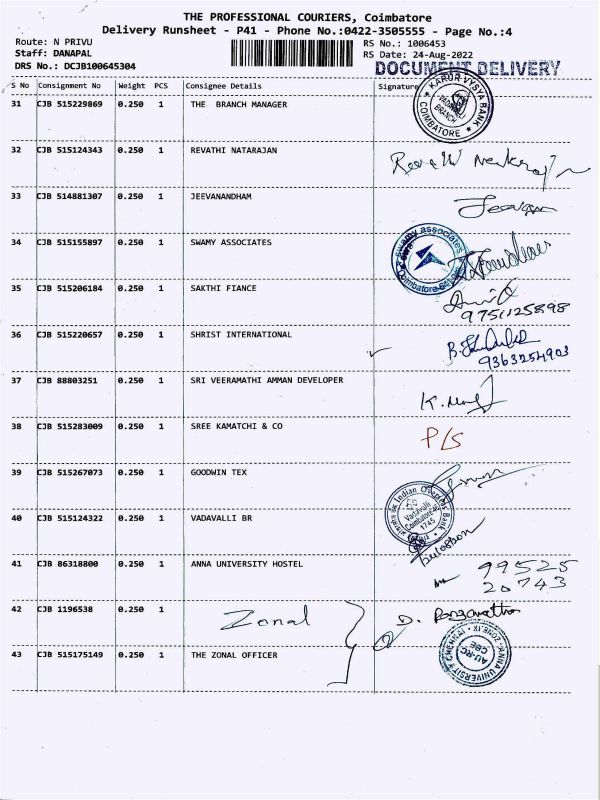 THE PROFESSIONAL COURIERS, Coimbatore
Delivery Runsheet - P41 - Phone No.:0422-3505555 - Page No.:4
Route: N PRIVU RS No.: 1006453
Staff: DANAPAL RS Date: 24-Aug-2022
DRS No.: DCJB100645304 DOCUMENT DELIVERY
S No Consignment No Weight PCS Consignee Details Signature
31 CJB 515229869 0.250 1 THE BRANCH MANAGER
KARUR VYSYA BANK
VADAVALLI
BRANCH
COIMBATORE
32 CJB 515124343 0.250 1 REVATHI NATARAJAN
33 CJB 514881307 0.250 1 JEEVANANDHAM
34 CJB 515155897 0.250 1 SWAMY ASSOCIATES
swamy associates
35 CJB 515206184 0.250 1 SAKTHI FIANCE
9751125898
36 CJB 515220657 0.250 1 SHRIST INTERNATIONAL
9363254903
37 CJB 88803251 0.250 1 SRI VEERAMATHI AMMAN DEVELOPER
K.
38 CJB 515283009 0.250 1 SREE KAMATCHI & CO
P/S
39 CJB 515267073 0.250 1 GOODWIN TEX
40 CJB 515124322 0.250 1 VADAVALLI BR
Indian Overseas Bank
Vadavalli
Coimbatore
1745
41 CJB 86318800 0.250 1 ANNA UNIVERSITY HOSTEL
99525
20743
42 CJB 1196538 0.250 1 Zonal
D.
43 CJB 515175149 0.250 1 THE ZONAL OFFICER
ANNA UNIVERSITY CHENNAI
ZONE.XI
AU-RC
CBE